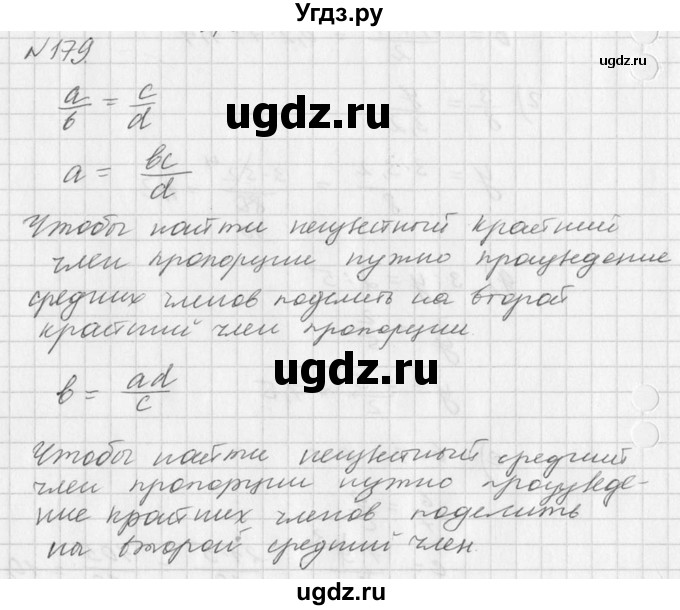 Угдз.ру
№179.
ugdz.ru
a/b = c/d
ugdz.ru
a = bc/d
Чтобы найти неизвестный крайний
член пропорции нужно произведение
средних членов поделить на второй
крайний член пропорции.
ugdz.ru
b = ad/c
Чтобы найти неизвестный средний
член пропорции нужно произведе-
ние крайних членов поделить
на второй средний член.
ugdz.ru